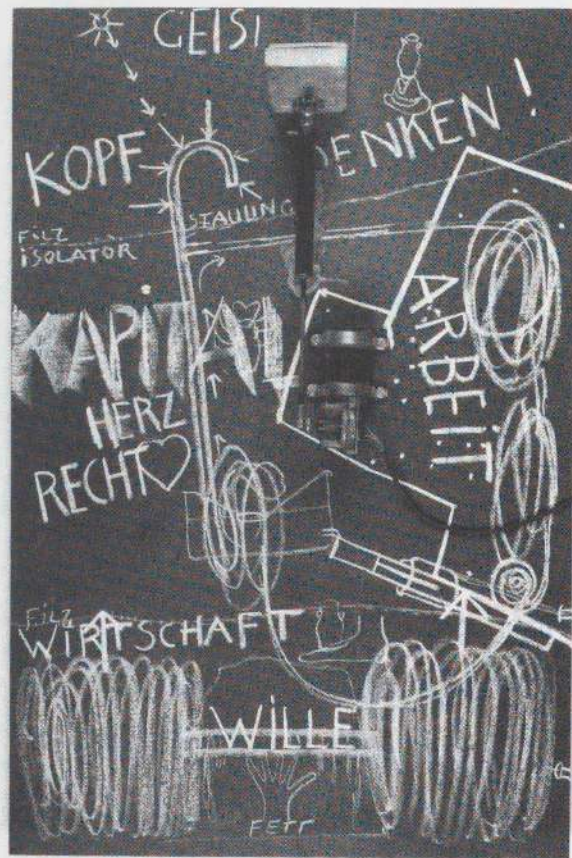 GEIST
KOPF
DENKEN !
STAUUNG
FILZ
ISOLATOR
KAPITAL
ARBEIT
HERZ
RECHT
FILZ
WIRTSCHAFT
WILLE
FETT